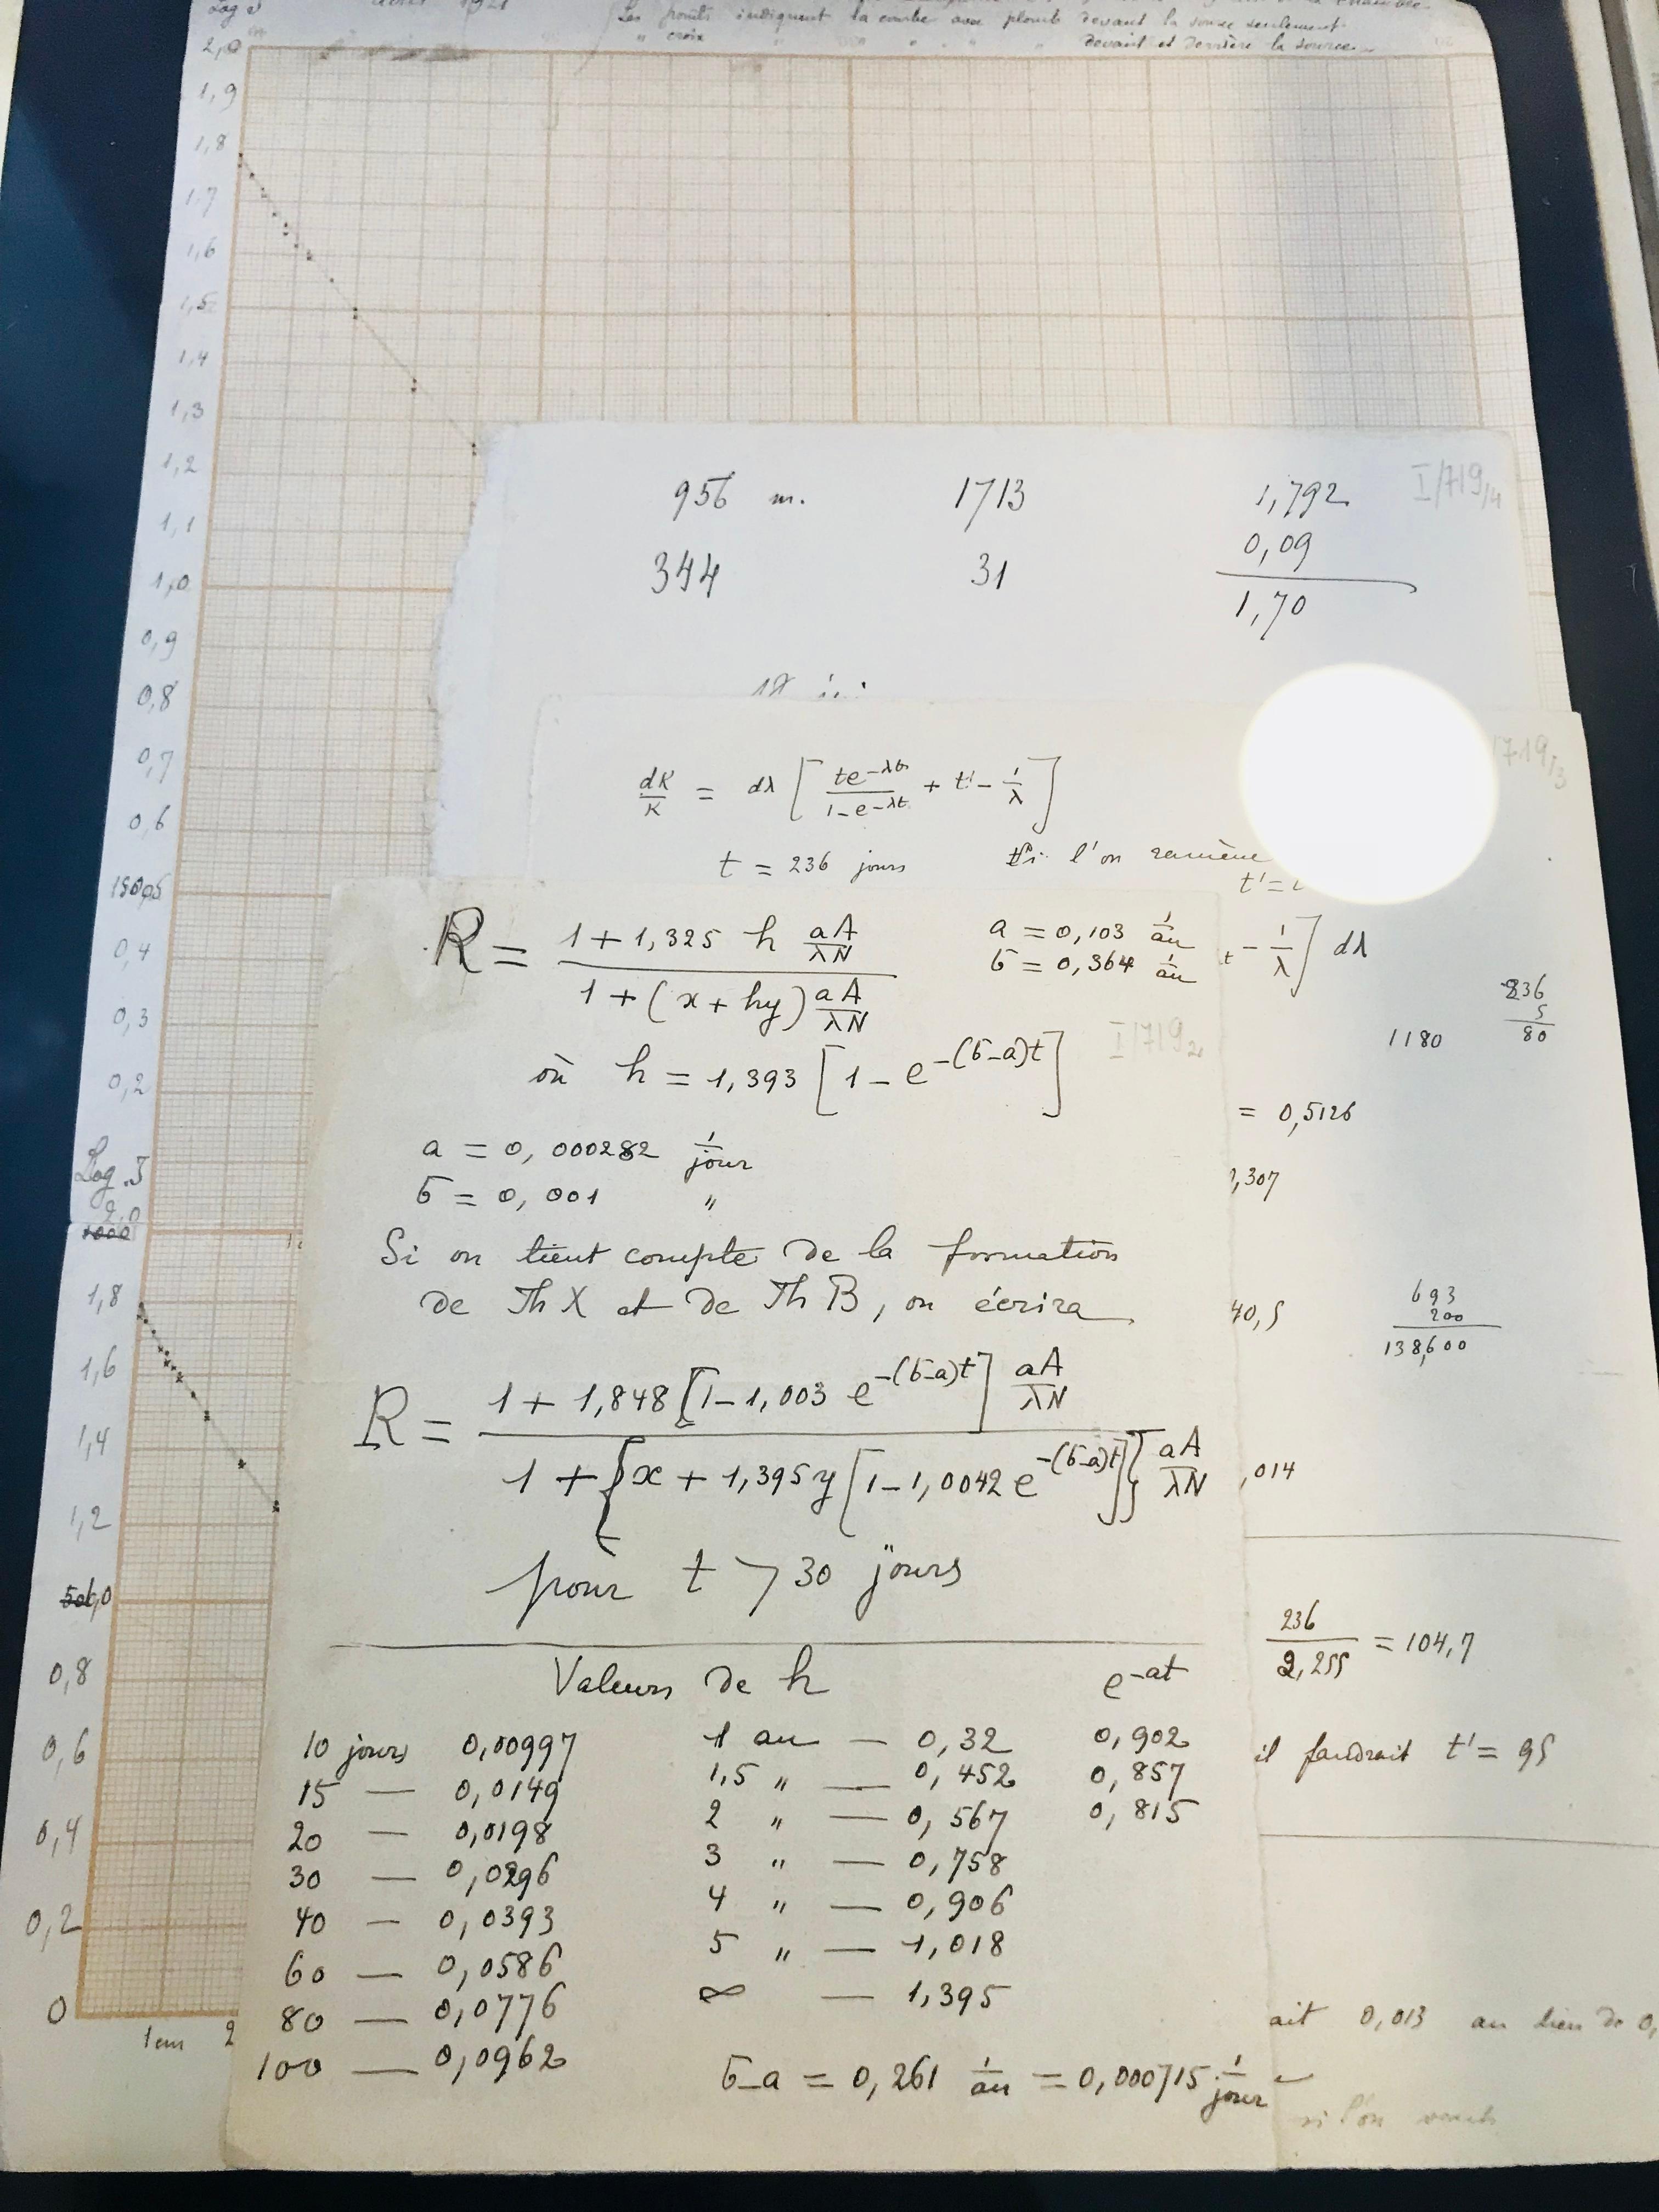 Log
1921
Les points indiquent la courbe avec plomb devant la source seulement
" croix " " " " devant et derrière la source
2,0
1,9
1,8
1,7
1,6
1,5
1,4
1,3
1,2
1,1
1,0
0,9
0,8
0,7
0,6
0,5
0,4
0,3
0,2
Log.I
2,0
1000
1,8
1,6
1,4
1,2
1,0
0,8
0,6
0,4
0,2
0
1cm 2
I/719/4
956 m. 1713 1,792
0,09
344 31 1,70
719/3
dK/K = dλ [ te^-λt / 1-e^-λt + t' - 1/λ ]
t = 236 jours Si l'on ramène
t'=
t - 1/λ ] dλ
236
5
1180 80
= 0,5126
,307
40,5
693
200
138,600
,014
236 / 2,255 = 104,7
il faudrait t' = 95
ait 0,013 au lieu de 0,
si l'on
R = 1 + 1,325 h aA/λN / 1 + (x + hy) aA/λN
a = 0,103 1/an
б = 0,364 1/an
I/719/2
où h = 1,393 [1 - e^-(б-a)t]
a = 0,000282 1/jour
б = 0,001 "
Si on tient compte de la formation
de Th X et de Th B, on écrira
R = 1 + 1,848 [1-1,003 e^-(б-a)t] aA/λN / 1 + {x + 1,395 y [1-1,0042 e^-(б-a)t]} aA/λN
pour t > 30 jours
Valeurs de h e^-at
10 jours 0,00997 1 an — 0,32 0,902
15 — 0,0149 1,5 " — 0,452 0,857
20 — 0,0198 2 " — 0,567 0,815
30 — 0,0296 3 " — 0,758
40 — 0,0393 4 " — 0,906
60 — 0,0586 5 " — 1,018
80 — 0,0776 ∞ — 1,395
100 — 0,0962
б-a = 0,261 1/an = 0,000715 1/jour